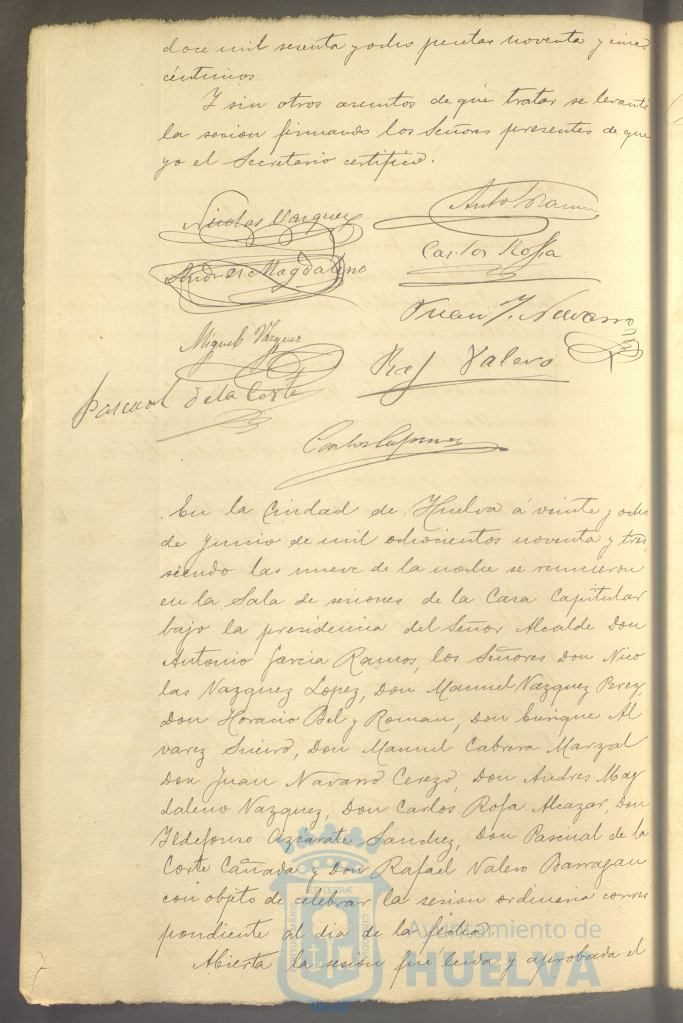 doce mil sesenta y ocho pesetas noventa y cinco
céntimos.
Y sin otros asuntos de que tratar se levantó
la sesion firmando los Señores presentes de que
yo el Secretario certifico.
Nicolas Vazquez
Anto
Andres Magdaleno
Carlos Rofa
Juan J. Navarro
Miguel Vazquez
Raf Valero
Pascual de la Corte
Carlos
En la Ciudad de Huelva á veinte y ocho
de Junio de mil ochocientos noventa y tres,
siendo las nueve de la noche se reunieron
en la Sala de sesiones de la Casa Capitular
bajo la presidencia del Señor Alcalde Don
Antonio Garcia Ramos, los Señores Don Nico
las Vazquez Lopez, Don Manuel Vazquez Perez,
Don Horacio Bel y Roman, Don Enrique Al
varez Sueiro, Don Manuel Cabrera Marzal
Don Juan Navarro Cerezo, Don Andres Mag
daleno Vazquez, Don Carlos Rofa Alcazar, Don
Ildefonso Azcarate Sanchez, Don Pascual de la
Corte Cañada y Don Rafael Valero Barragan
con objeto de celebrar la sesion ordinaria corres
pondiente al dia de la fecha.
Abierta la sesion fue leida y aprobada el
Ayuntamiento de
HUELVA